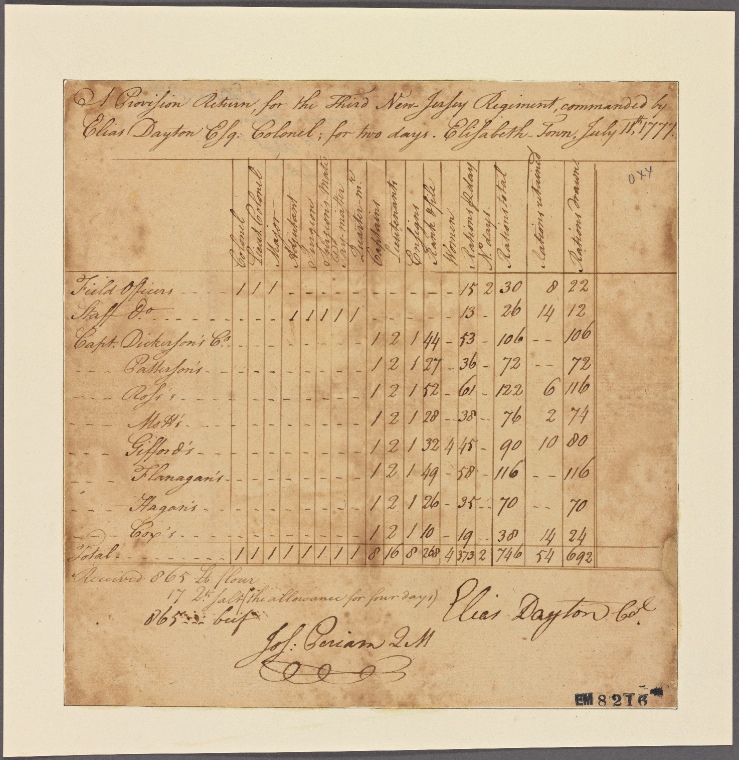 A Provision Return, for the Third New-Jersey Regiment, commanded by
Elias Dayton Esq. Colonel; for two days. Elisabeth Town, July 11th, 1777.
Colonel Lieut Colonel Major Adjutant Surgeon Surgeons Mate Paymaster Quarter mr Captains Lieutenants Ensigns Rank & file Women Rations P day No days Rations total Rations returned Rations Drawn
Field Officers 1 1 1 - - - - - - - - - - 15 2 30 8 22
Staff Do - - - 1 1 1 1 1 - - - - - 13 - 26 14 12
Capt. Dickerson's Co. - - - - - - - - 1 2 1 44 - 53 - 106 - - 106
Patterson's - - - - - - - - 1 2 1 27 - 36 - 72 - - 72
Ross's - - - - - - - - 1 2 1 52 - 61 - 122 6 116
Mott's - - - - - - - - 1 2 1 28 - 38 - 76 2 74
Gifford's - - - - - - - - 1 2 1 32 4 45 - 90 10 80
Flanagan's - - - - - - - - 1 2 1 49 - 58 - 116 - - 116
Hagan's - - - - - - - - 1 2 1 26 - 35 - 70 - - 70
Cox's - - - - - - - - 1 2 1 10 - 19 - 38 14 24
Total 1 1 1 1 1 1 1 1 8 16 8 268 4 373 2 746 54 692
Received 865 lb flour
17 Do salt (the allowance for four days)
865 beef
Elias Dayton Col
Jos: Periam QM
EM 8216